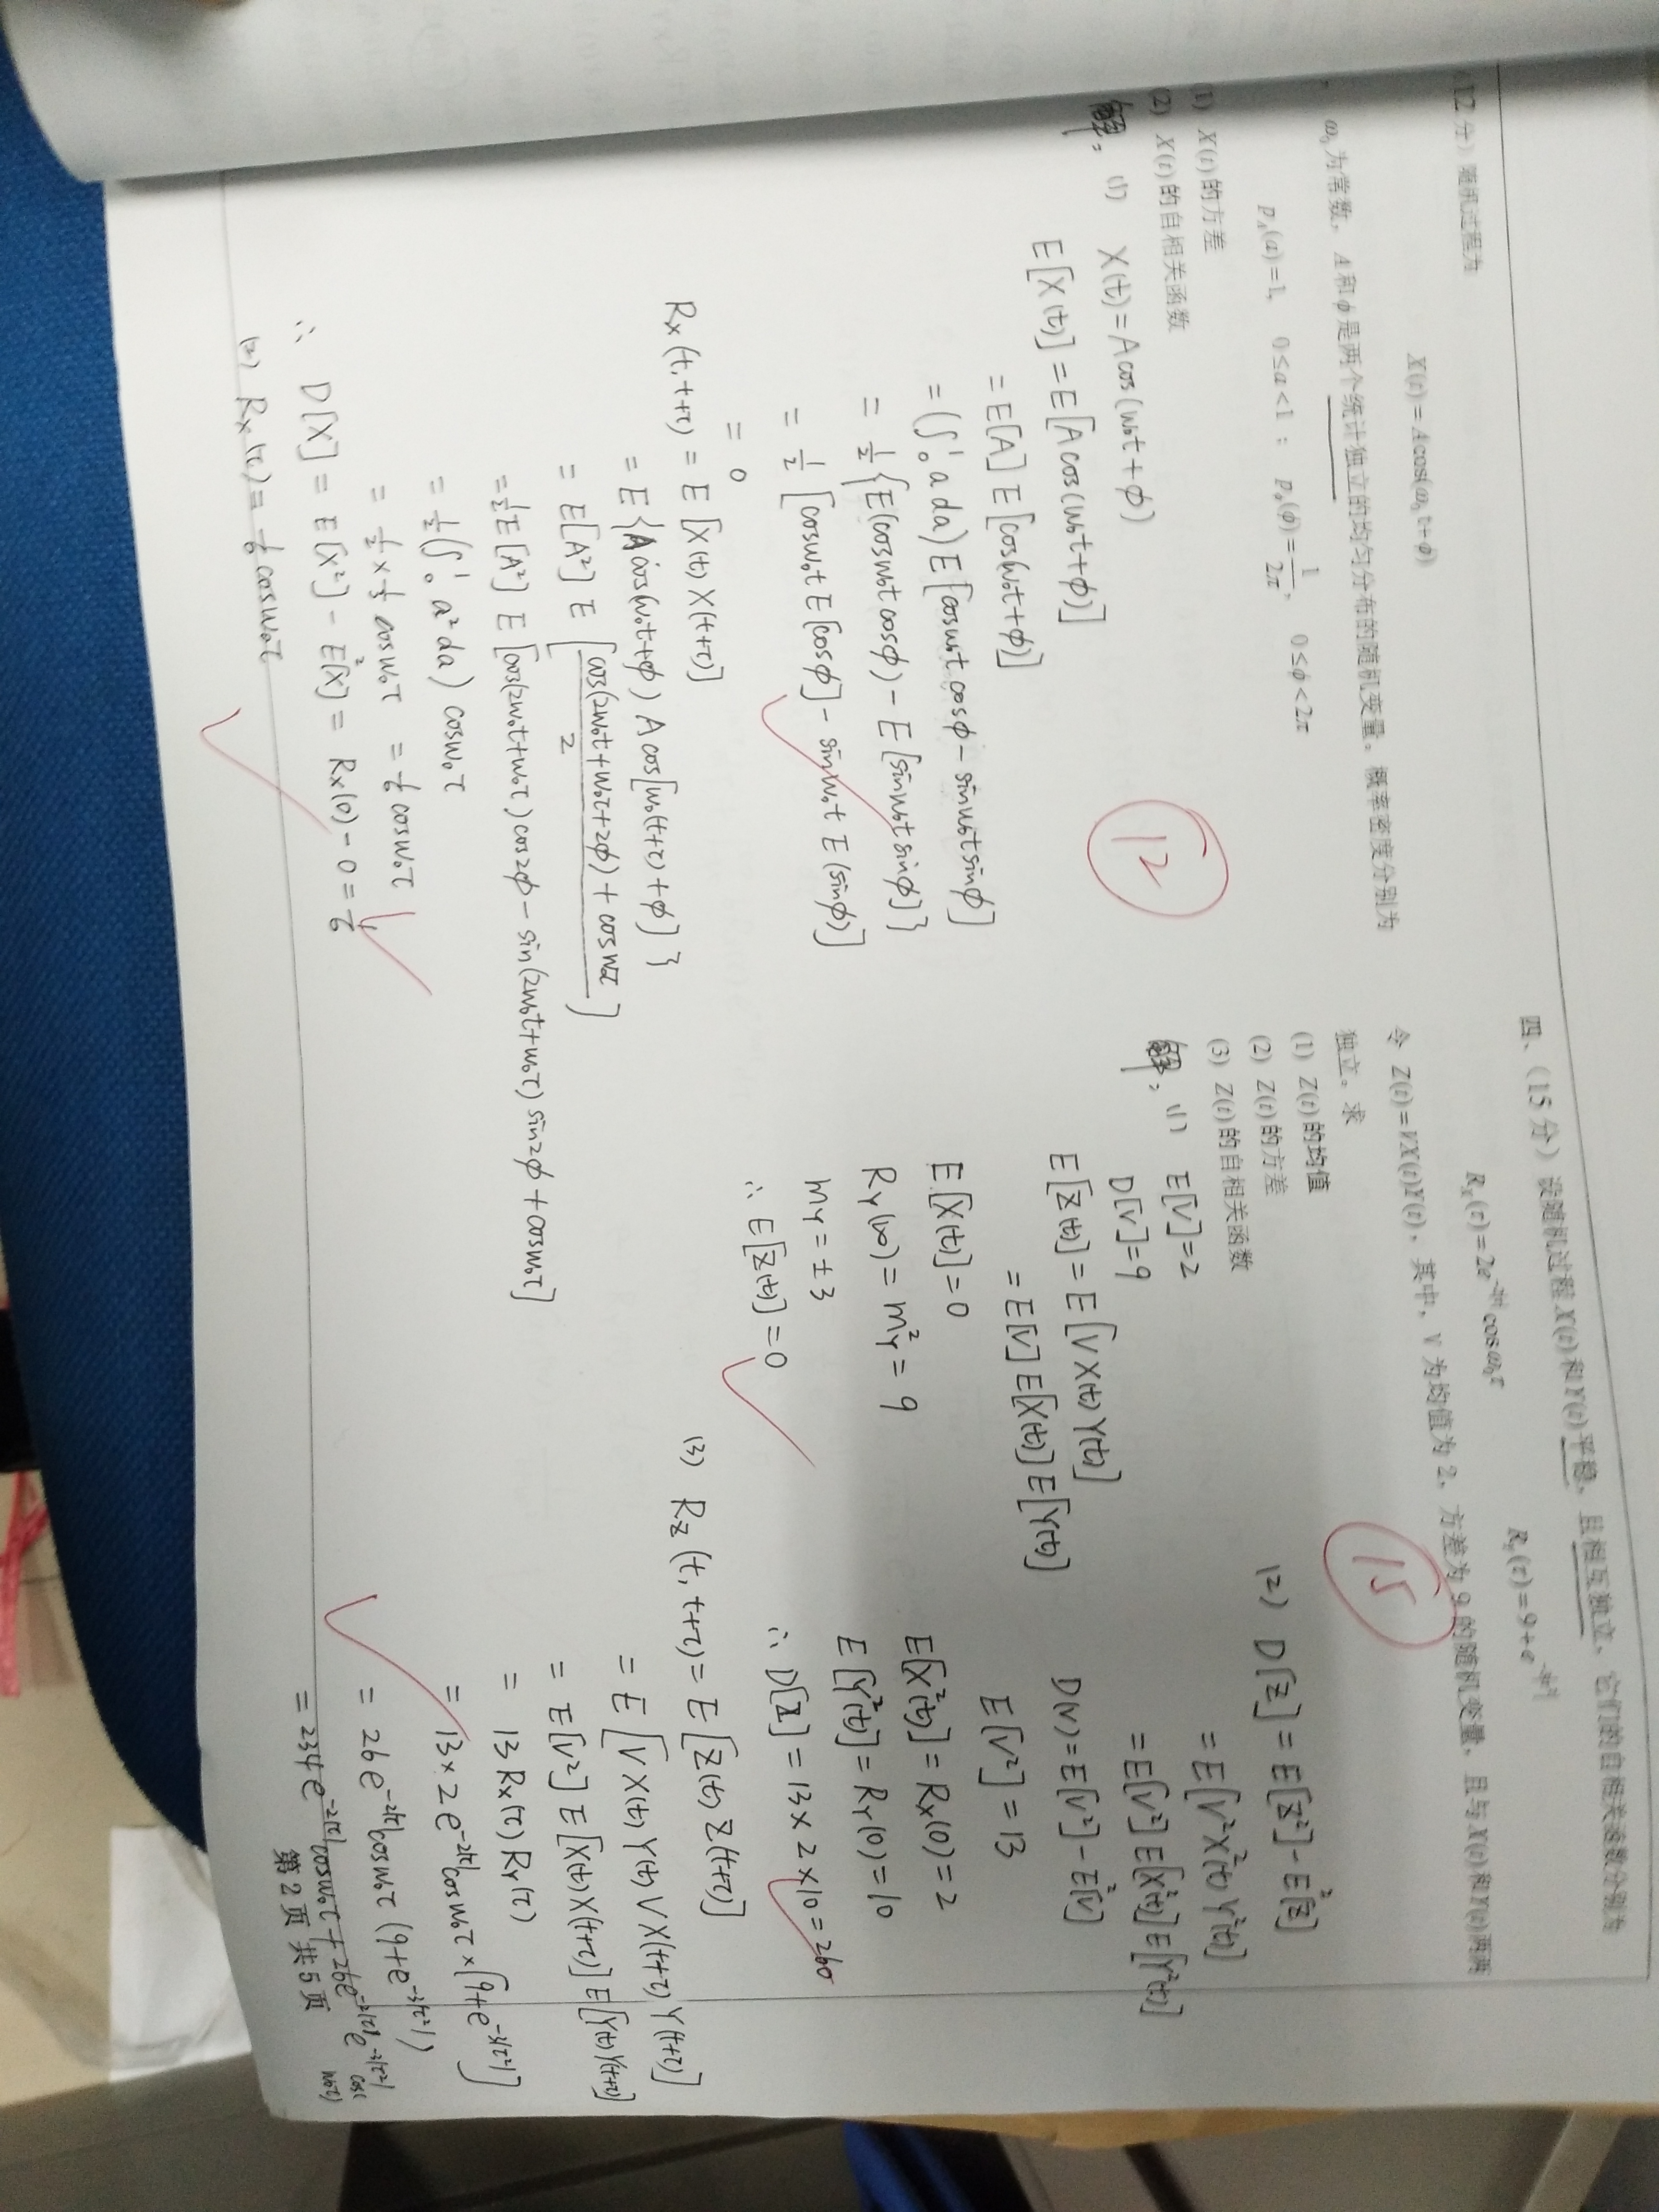 12分）随机过程为
X(t)=Acos(ω₀t+ϕ)
ω₀为常数，A和ϕ是两个统计独立的均匀分布的随机变量。概率密度分别为
p_A(a)=1, 0≤a<1； p_ϕ(ϕ)=1/2π, 0≤ϕ<2π
(1) X(t)的方差
(2) X(t)的自相关函数
12
解：(1) X(t)=Acos(ω₀t+ϕ)
E[X(t)]=E[Acos(ω₀t+ϕ)]
=E[A]E[cos(ω₀t+ϕ)]
=(∫₀¹a da)E[cosω₀t cosϕ-sinω₀t sinϕ]
=1/2{E(cosω₀t cosϕ)-E[sinω₀t sinϕ]}
=1/2[cosω₀t E[cosϕ]-sinω₀t E(sinϕ)]
=0
R_X(t,t+τ)=E[X(t)X(t+τ)]
=E{Acos(ω₀t+ϕ)Acos[ω₀(t+τ)+ϕ]}
=E[A²]E[(cos(2ω₀t+ω₀τ+2ϕ)+cosω₀τ)/2]
=1/2E[A²]E[cos(2ω₀t+ω₀τ)cos2ϕ-sin(2ω₀t+ω₀τ)sin2ϕ+cosω₀τ]
=1/2(∫₀¹a²da)cosω₀τ
=1/2×1/3cosω₀τ=1/6cosω₀τ
∴ D[X]=E[X²]-E²[X]=R_X(0)-0=1/6
(2) R_X(τ)=1/6cosω₀τ
四、（15分）设随机过程X(t)和Y(t)平稳，且相互独立，它们的自相关函数分别为
R_X(τ)=2e^{-2|τ|}cosω₀τ R_Y(τ)=9+e^{-3|τ²|}
令 Z(t)=VX(t)Y(t)，其中，V为均值为2，方差为9的随机变量，且与X(t)和Y(t)两两
独立。求
15
(1) Z(t)的均值
(2) Z(t)的方差
(3) Z(t)的自相关函数
解：(1) E[V]=2
D[V]=9
E[Z(t)]=E[VX(t)Y(t)]
=E[V]E[X(t)]E[Y(t)]
E[X(t)]=0
R_Y(∞)=m_Y²=9
m_Y=±3
∴ E[Z(t)]=0
(2) D[Z]=E[Z²]-E²[Z]
=E[V²X²(t)Y²(t)]
=E[V²]E[X²(t)]E[Y²(t)]
D(V)=E[V²]-E²[V]
E[V²]=13
E[X²(t)]=R_X(0)=2
E[Y²(t)]=R_Y(0)=10
∴ D[Z]=13×2×10=260
(3) R_Z(t,t+τ)=E[Z(t)Z(t+τ)]
=E[VX(t)Y(t)VX(t+τ)Y(t+τ)]
=E[V²]E[X(t)X(t+τ)]E[Y(t)Y(t+τ)]
=13R_X(τ)R_Y(τ)
=13×2e^{-2|τ|}cosω₀τ×[9+e^{-3|τ²|}]
=26e^{-2|τ|}cosω₀τ(9+e^{-3|τ²|})
=234e^{-2|τ|}cosω₀τ+26e^{-2|τ|}e^{-3|τ²|}cos(ω₀τ)
第2页 共5页